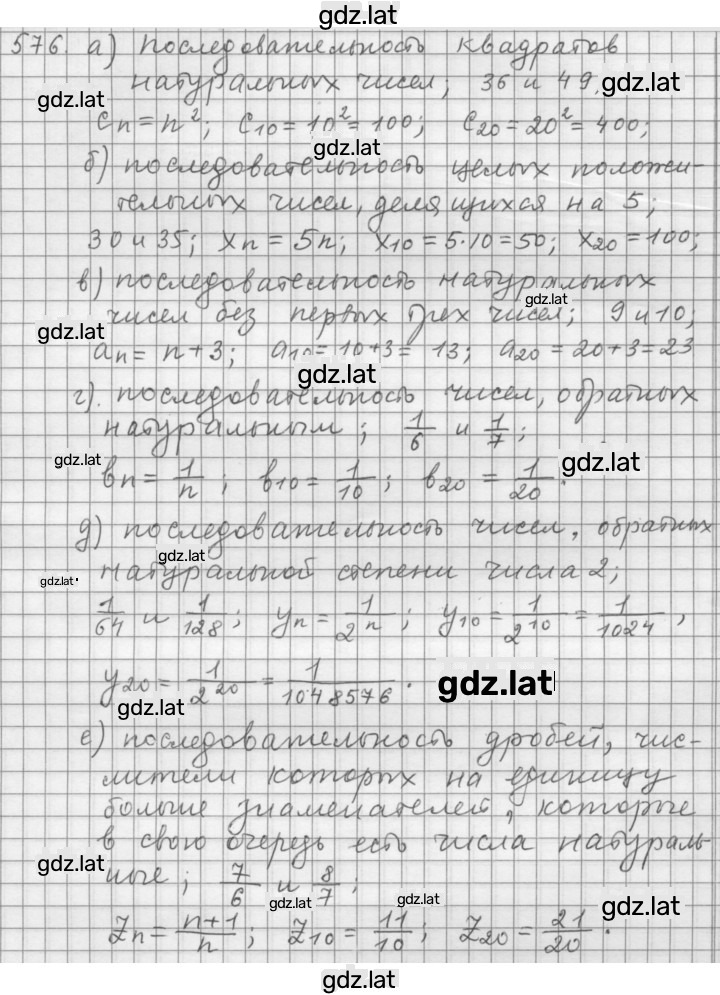 gdz.lat
576. а) последовательность квадратов
gdz.lat натуральных чисел; 36 и 49. gdz.lat
cₙ = n²; c₁₀ = 10² = 100; c₂₀ = 20² = 400;
gdz.lat
б) последовательность целых положи-
тельных чисел, делящихся на 5;
30 и 35; xₙ = 5n; x₁₀ = 5·10 = 50; x₂₀ = 100;
в) последовательность натуральных
gdz.lat
gdz.lat чисел без первых трех чисел; 9 и 10;
aₙ = n + 3; a₁₀ = 10 + 3 = 13; a₂₀ = 20 + 3 = 23
gdz.lat
г). последовательность чисел, обратных
натуральным; 1/6 и 1/7;
gdz.lat gdz.lat
bₙ = 1/n; b₁₀ = 1/10; b₂₀ = 1/20.
д) последовательность чисел, обратных
gdz.lat
gdz.lat· натуральной степени числа 2;
1/64 и 1/128; yₙ = 1/2ⁿ; y₁₀ = 1/2¹⁰ = 1/1024,
y₂₀ = 1/2²⁰ = 1/1048576. gdz.lat
gdz.lat
е) последовательность дробей, чис-
лители которых на единицу
больше знаменателей, которые
в свою очередь есть числа натураль-
gdz.lat ные; 7/6 и 8/7;
gdz.lat gdz.lat gdz.lat
zₙ = (n+1)/n; z₁₀ = 11/10; z₂₀ = 21/20.
gdz.lat